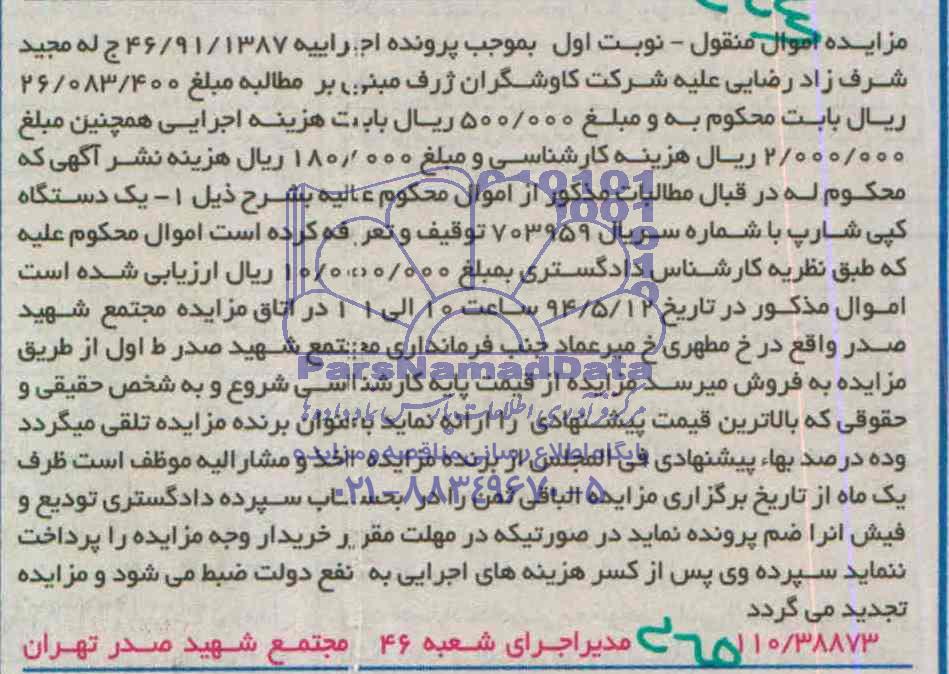 مزایـده اموال منقول - نوبت اول بموجب پرونده اجراییه ۴۶/۹۱/۱۳۸۷ ج له مجید
شرف زاد رضایی علیه شرکت کاوشگران ژرف مبنی بر مطالبه مبلغ ۲۶/۰۸۳/۴۰۰
ریال بابت محکوم به و مبلغ ۵۰۰/۰۰۰ ریال بابت هزینه اجرایی همچنین مبلغ
۲/۰۰۰/۰۰۰ ریال هزینه کارشناسی و مبلغ ۱۸۰/۰۰۰ ریال هزینه نشر آگهی که
محکوم له در قبال مطالبات مذکور از اموال محکوم علیه بشرح ذیل ۱- یک دستگاه
کپی شارپ با شماره سریال ۷۰۳۹۵۹ توقیف و تعرفه کرده است اموال محکوم علیه
که طبق نظریه کارشناس دادگستری بمبلغ ۱۰/۰۰۰/۰۰۰ ریال ارزیابی شده است
اموال مذکور در تاریخ ۹۴/۵/۱۲ ساعت ۱۰ الی ۱۱ در اتاق مزایده مجتمع شهید
صدر واقع در خ مطهری خ میرعماد جنب فرمانداری مجتمع شهید صدر ط اول از طریق
مزایده به فروش میرسد مزایده از قیمت پایه کارشناسی شروع و به شخص حقیقی و
حقوقی که بالاترین قیمت پیشنهادی را ارائه نماید بعنوان برنده مزایده تلقی میگردد
وده درصد بهاء پیشنهادی فی المجلس از برنده مزایده اخذ و مشارالیه موظف است ظرف
یک ماه از تاریخ برگزاری مزایده الباقی ثمن را در بحساب سپرده دادگستری تودیع و
فیش انرا ضم پرونده نماید در صورتیکه در مهلت مقرر خریدار وجه مزایده را پرداخت
ننماید سپرده وی پس از کسر هزینه های اجرایی به نفع دولت ضبط می شود و مزایده
تجدید می گردد
۱۱۰/۳۸۸۷۳ مدیراجرای شعبه ۴۶ مجتمع شهید صدر تهران
ParsNamadData
مرکز فرآوری اطلاعات پارس نماد داده ها
پایگاه اطلاع رسانی مناقصه و مزایده
۰۲۱-۸۸۳۴۹۶۷۰-۵